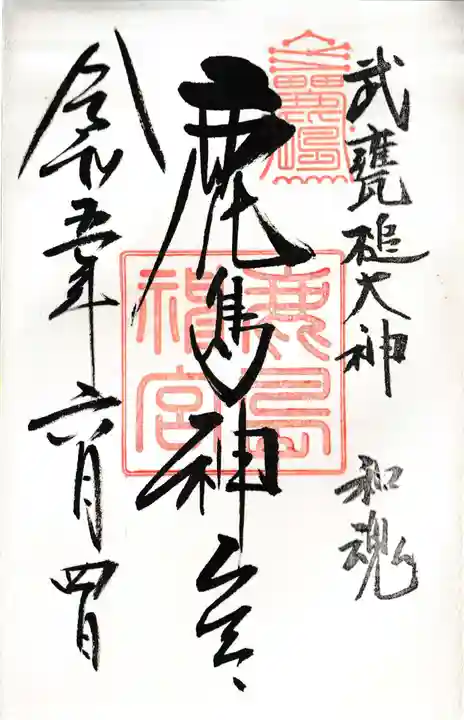 武甕槌大神 和魂
鹿島神宮
鹿島神宮
令和五年六月四日